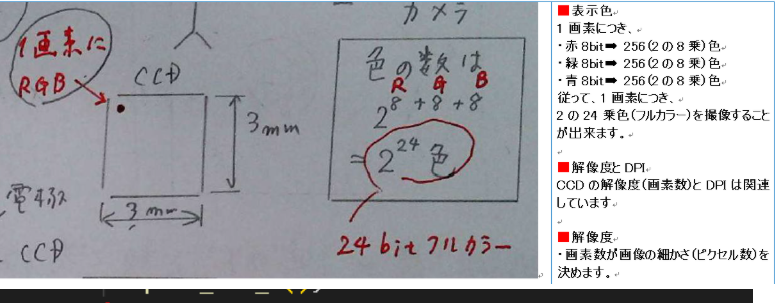 カメラ
1画素に
RGB
CCD
3mm
3mm
電極
CCD
色の数は
R G B
2^8+8+8
=2^24色
24bitフルカラー
■表示色
1画素につき、
・赤8bit➡256(2の8乗)色
・緑8bit➡256(2の8乗)色
・青8bit➡256(2の8乗)色
従って、1画素につき、
2の24乗色(フルカラー)を撮像すること
が出来ます。
■解像度とDPI
CCDの解像度(画素数)とDPIは関連
しています
■解像度
・画素数が画像の細かさ(ピクセル数)を
決めます。